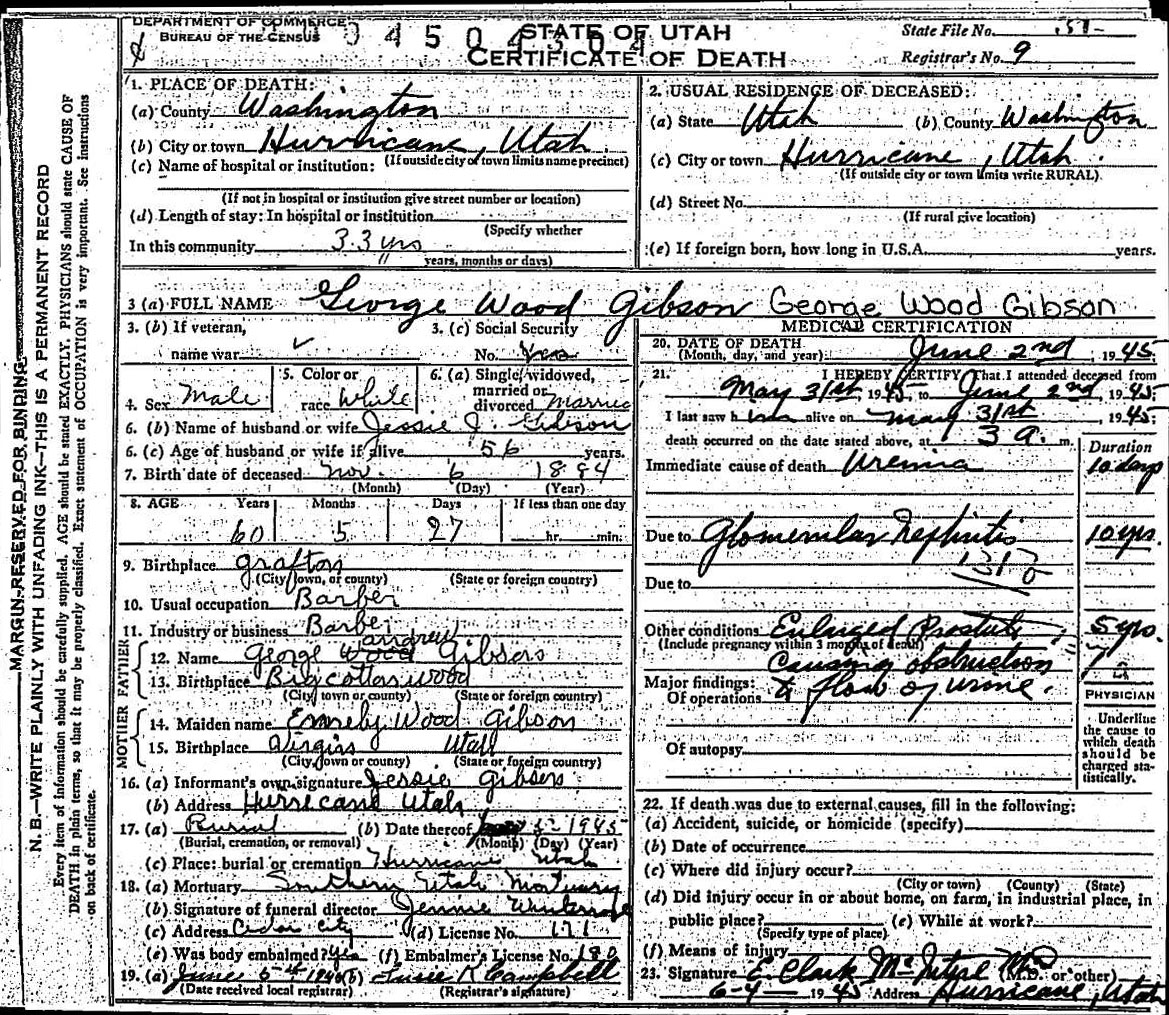 DEPARTMENT OF COMMERCE
BUREAU OF THE CENSUS
STATE OF UTAH
CERTIFICATE OF DEATH
State File No.
Registrar's No. 9
MARGIN RESERVED FOR BINDING
N. B.—WRITE PLAINLY WITH UNFADING INK—THIS IS A PERMANENT RECORD
Every item of Information should be carefully supplied. AGE should be stated EXACTLY. PHYSICIANS should state CAUSE OF
DEATH in plain terms, so that it may be properly classified. Exact statement of OCCUPATION is very important. See instructions
on back of certificate.
1. PLACE OF DEATH:
(a) County Washington
(b) City or town Hurricane, Utah.
(If outside city or town limits name precinct)
(c) Name of hospital or institution:
(If not in hospital or institution give street number or location)
(d) Length of stay: In hospital or institution
(Specify whether
In this community 33 yrs
years, months or days)
2. USUAL RESIDENCE OF DECEASED:
(a) State Utah (b) County Washington
(c) City or town Hurricane, Utah.
(If outside city or town limits write RURAL)
(d) Street No.
(If rural give location)
(e) If foreign born, how long in U.S.A. years.
3 (a) FULL NAME George Wood Gibson George Wood Gibson
3. (b) If veteran,
name war
3. (c) Social Security
No.
4. Sex Male
5. Color or
race White
6. (a) Single, widowed,
married or
divorced Married
6. (b) Name of husband or wife Jessie J. Gibson
6. (c) Age of husband or wife if alive 56 years.
7. Birth date of deceased Nov. 6 1884
(Month) (Day) (Year)
8. AGE Years Months Days If less than one day
60 5 27 hr. min.
9. Birthplace Grafton
(City, town, or county) (State or foreign country)
10. Usual occupation Barber
11. Industry or business Barber
FATHER
12. Name George Andrew Wood Gibson
13. Birthplace Big cottonwood
(City, town or county) (State or foreign country)
MOTHER
14. Maiden name Wood Gibson
15. Birthplace Virgin Utah
(City, town or county) (State or foreign country)
16. (a) Informant's own signature Jessie Gibson
(b) Address Hurricane Utah
17. (a) Burial (b) Date thereof 5 1945
(Burial, cremation, or removal) (Month) (Day) (Year)
(c) Place: burial or cremation Hurricane Utah
18. (a) Mortuary Southern Utah Mortuary
(b) Signature of funeral director Jennie
(c) Address Cedar City (d) License No. 171
(e) Was body embalmed? Yes (f) Embalmer's License No. 180
19. (a) June 5th (b) Susie R Campbell
(Date received local registrar) (Registrar's signature)
MEDICAL CERTIFICATION
20. DATE OF DEATH
(Month, day, and year) June 2nd, 1945.
21. I HEREBY CERTIFY That I attended deceased from
May 31st, 1945, to June 2nd, 1945.
I last saw him alive on May 31st 1945.
death occurred on the date stated above, at 3 a. m.
Duration
Immediate cause of death Uremia 10 days
Due to Glomerular Nephritis 10 yrs.
Due to
Other conditions Enlarged Prostate 5 yrs.
(Include pregnancy within 3 months of death)
Causing obstruction
Major findings:
Of operations to flow of urine.
Of autopsy
PHYSICIAN
Underline
the cause to
which death
should be
charged sta-
tistically.
22. If death was due to external causes, fill in the following:
(a) Accident, suicide, or homicide (specify)
(b) Date of occurrence
(c) Where did injury occur?
(City or town) (County) (State)
(d) Did injury occur in or about home, on farm, in industrial place, in
public place? (e) While at work?
(Specify type of place)
(f) Means of injury
23. Signature E. Clark McIntire MD (M.D. or other)
6-4- 1945 Address Hurricane, Utah